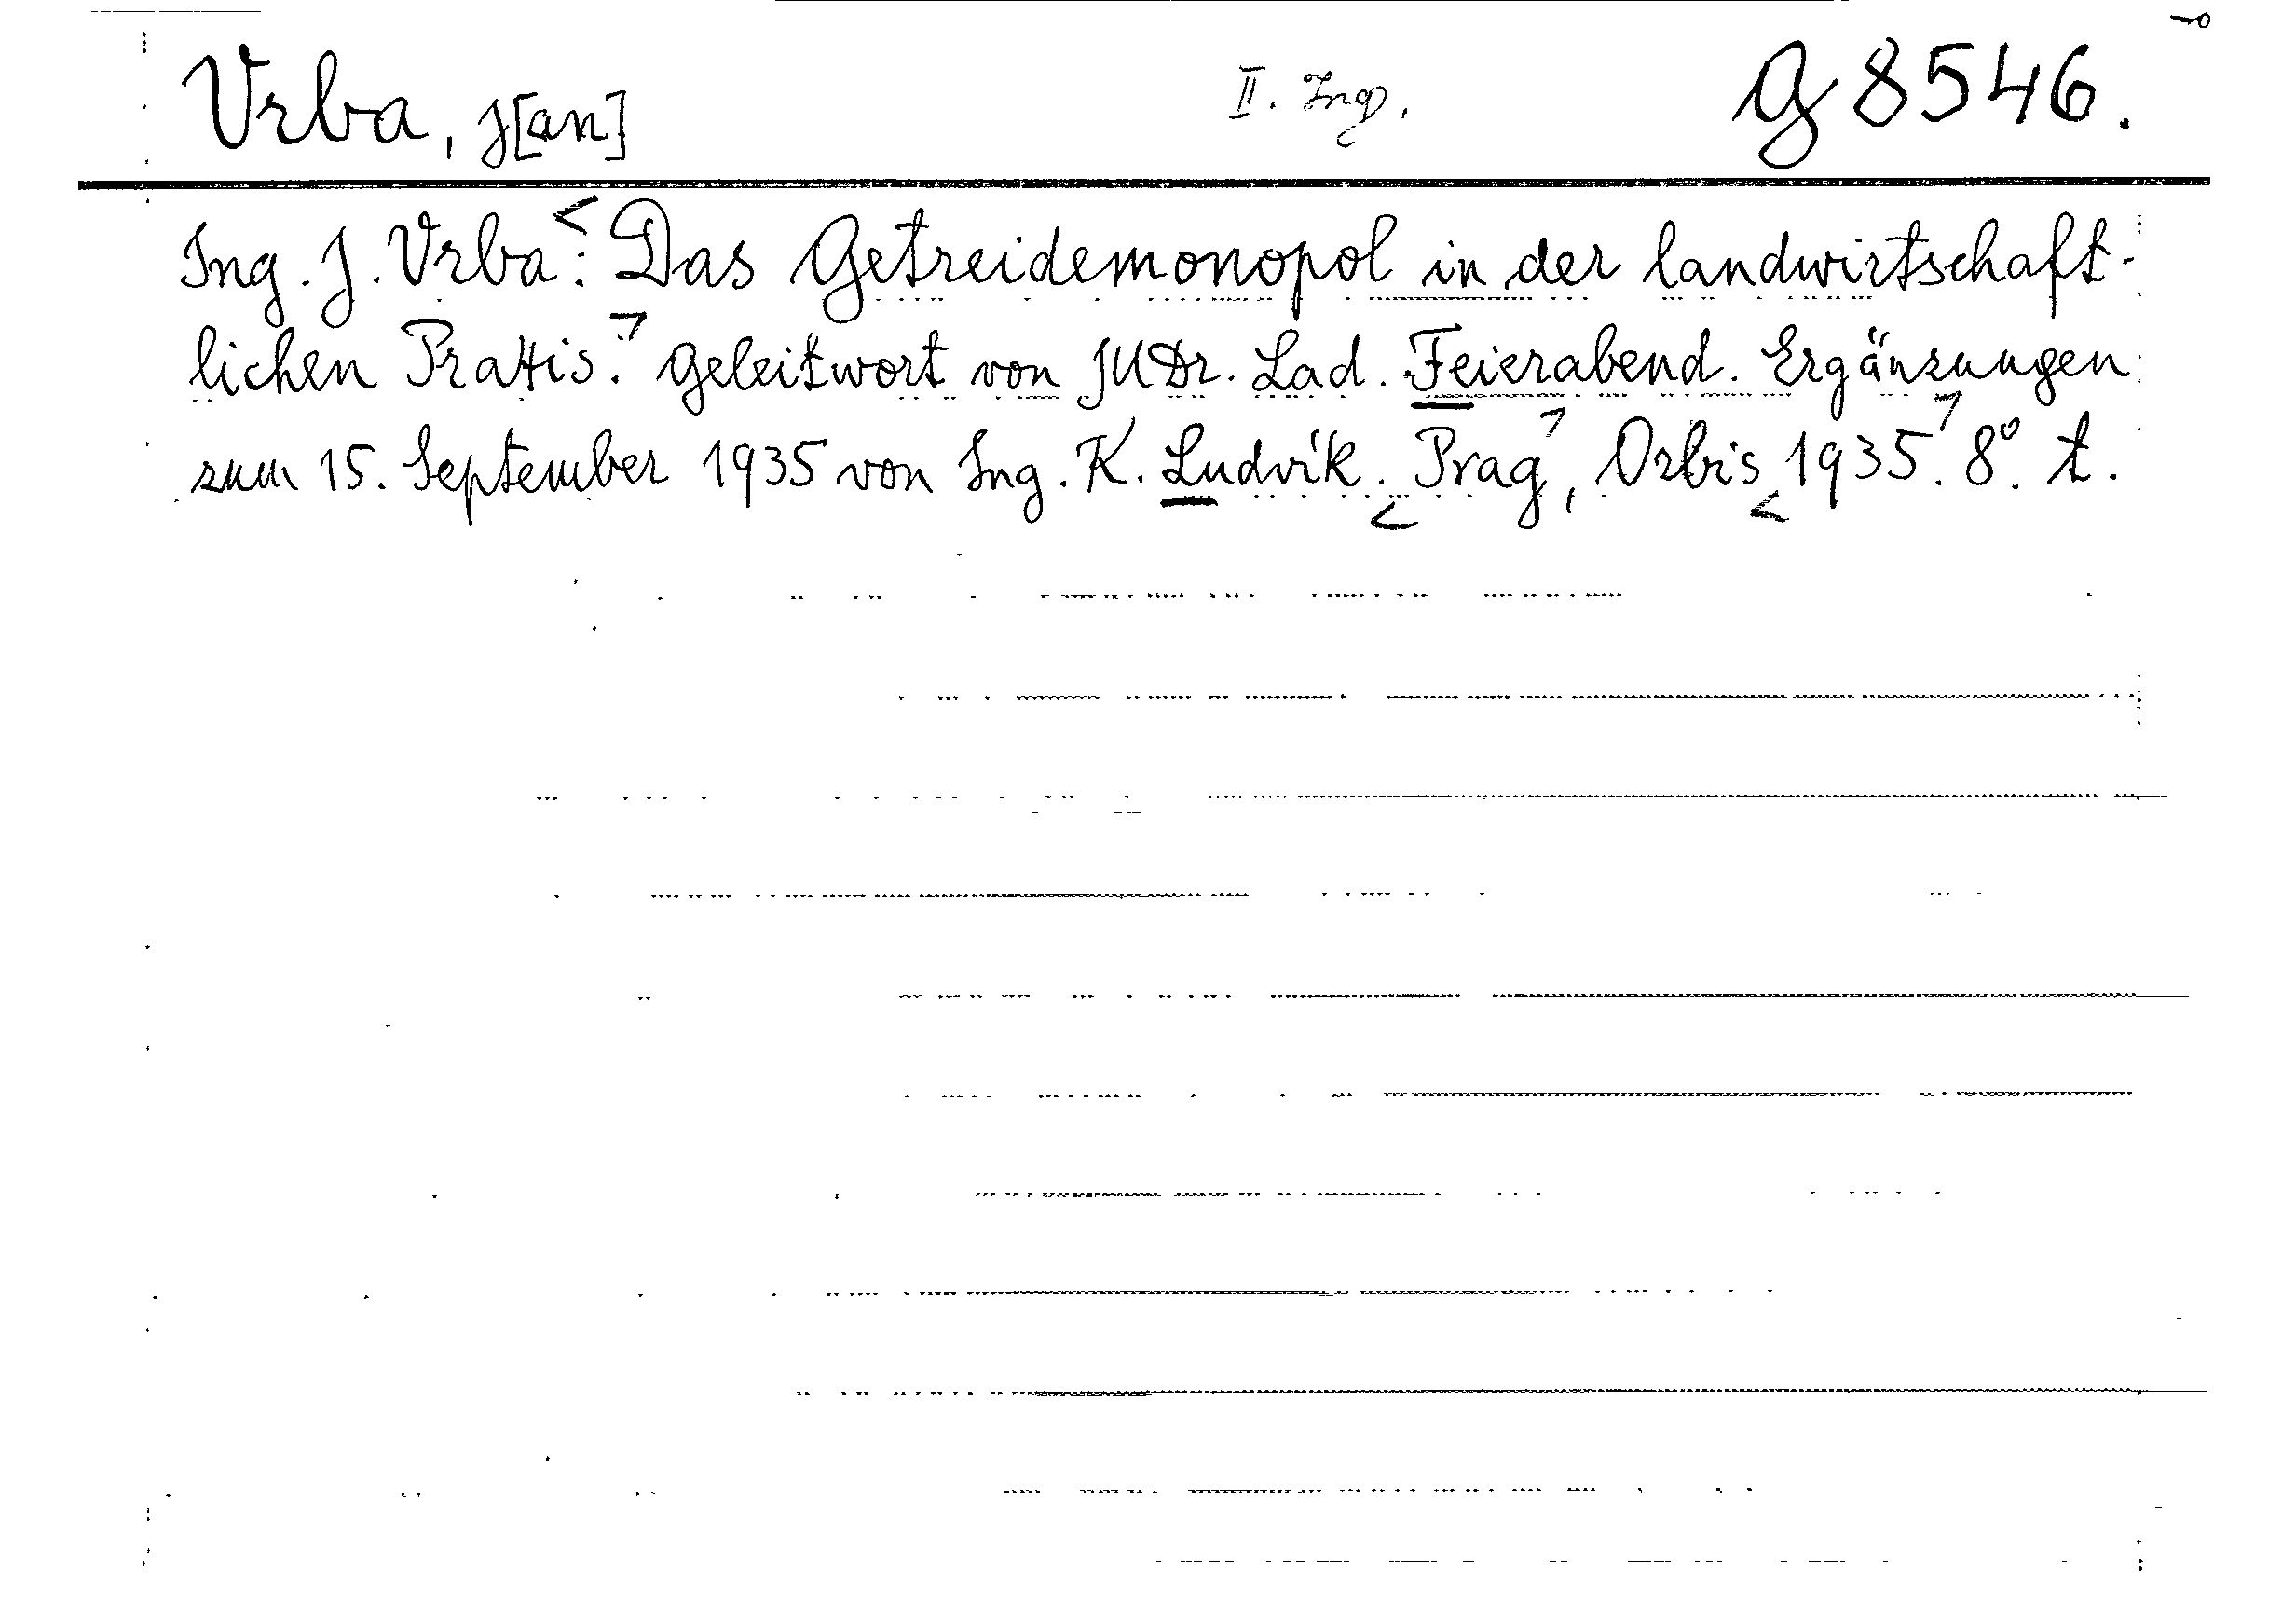 Vrba, J[an] II. Ing. G 8546.
Ing. J. Vrba: Das Getreidemonopol in der landwirtschaft-
lichen Praxis. Geleitwort von JUDr. Lad. Feierabend. Ergänzungen
zum 15. September 1935 von Ing. K. Ludvík. Prag, Orbis 1935. 8°. t.